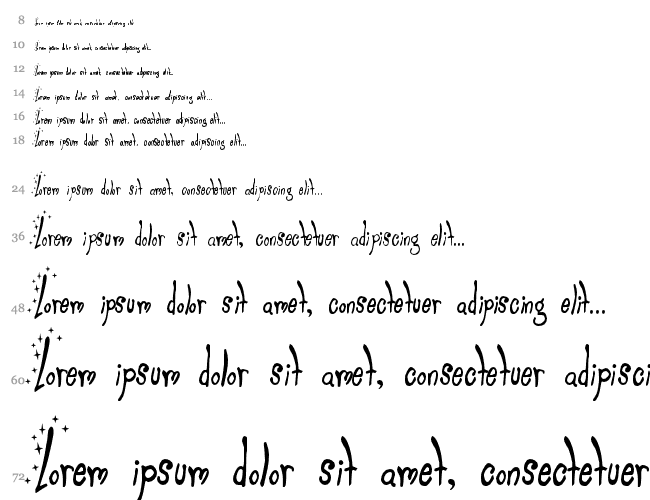 8 Lorem ipsum dolor sit amet, consectetuer adipiscing elit...
10 Lorem ipsum dolor sit amet, consectetuer adipiscing elit...
12 Lorem ipsum dolor sit amet, consectetuer adipiscing elit...
14 Lorem ipsum dolor sit amet, consectetuer adipiscing elit...
16 Lorem ipsum dolor sit amet, consectetuer adipiscing elit...
18 Lorem ipsum dolor sit amet, consectetuer adipiscing elit...
24 Lorem ipsum dolor sit amet, consectetuer adipiscing elit...
36 Lorem ipsum dolor sit amet, consectetuer adipiscing elit...
48 Lorem ipsum dolor sit amet, consectetuer adipiscing elit...
60 Lorem ipsum dolor sit amet, consectetuer adipisci
72 Lorem ipsum dolor sit amet, consectetuer